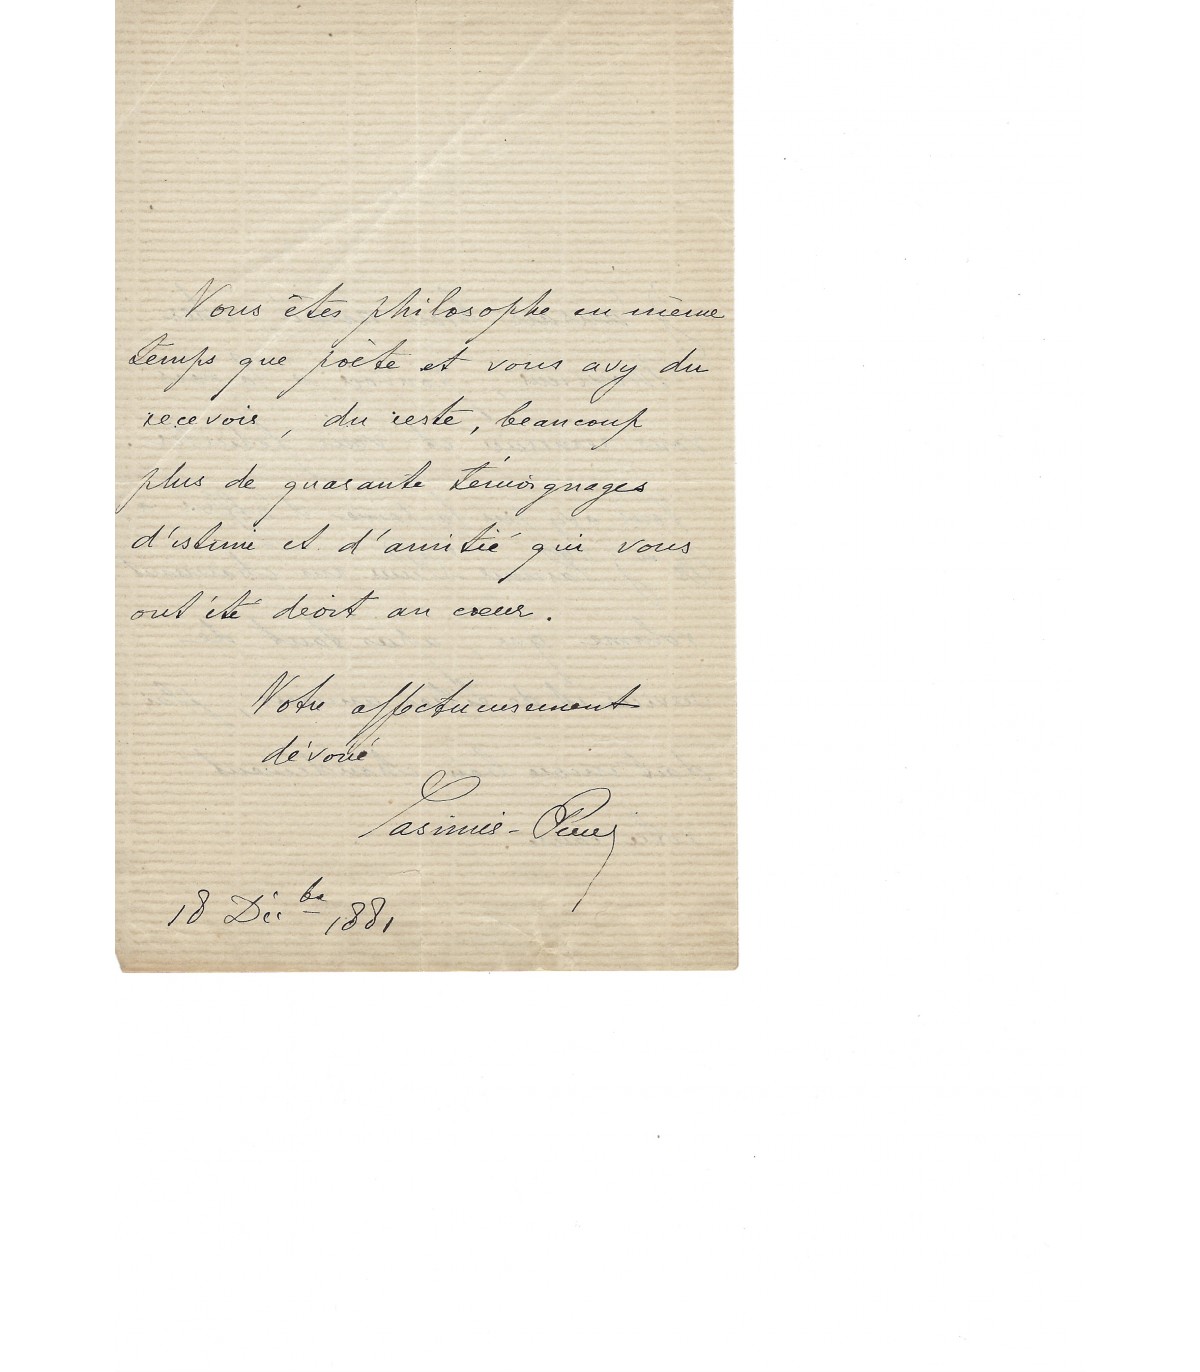 Vous êtes philosophe en même
temps que poète et vous avez du
recevoir, du reste, beaucoup
plus de quarante témoignages
d'estime et d'amitié qui vous
ont été droit au cœur.
Votre affectueusement
dévoué
Casimir-Perier
18 Déc.bre 1881